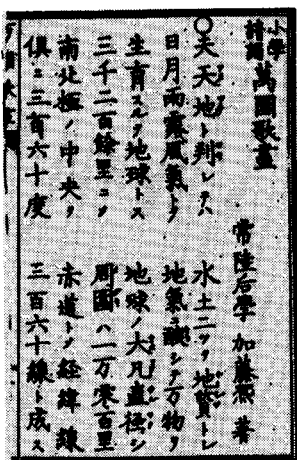 小學
諳誦
萬國歌盡
常陸后學 加藤熙 著
○夫天地ト判レテハ 水土二ツヲ地質トシ
日月雨露風氣トゾ 地氣ヲ釀シテ万物ヲ
生育スルヲ地球トス 地球ノ大凡直徑ハ
三千二百餘里ニシテ 周圍ハ一万零百里
南北極ノ中央ヲ 赤道トゾ経緯線
俱ニ三百六十度 三百六十線ト成ス